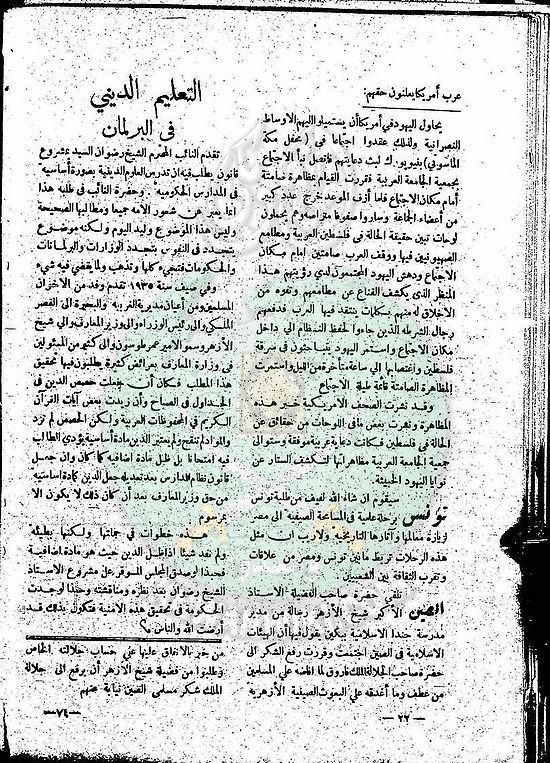 عرب أمريكا يعلنون حقهم:
يحاول اليهود في أمريكا أن يستميلوا اليهم الاوساط
النصرانية ولذلك عقدوا اجتماعا في (محفل مكة
الماسوني) بنيويورك لبث دعايتهم فاتصل نبأ الاجتماع
بجمعية الجامعة العربية فقررت القيام بمظاهرة صامتة
أمام مكان الاجتماع فلما أزف الموعد خرج عدد كبير
من أعضاء الجماعة وساروا صفوفا متراصة وهم يحملون
لوحات تبين حقيقة الحالة في فلسطين العربية ومطامع
الصهيونيين فيها ووقف العرب صامتين امام مكان
الاجتماع ودهش اليهود المجتمعون لدى رؤيتهم هذا
المنظر الذي يكشف القناع عن مطامعهم وتفوه من
الاخلاق له منهم بسكمات ينتقد فيها العرب فدفعهم
رجال الشرطة الذين جاءوا لحفظ النظام الى داخل
مكان الاجتماع واستمر اليهود يتباحثون في سرقة
فلسطين واغتصابها الى ساعة متأخرة من الليل واستمرت
المظاهرة الصامتة قائمة طيلة الاجتماع
وقد نشرت الصحف الأمريكية خبر هذه
المظاهرة ونشرت بعض مافى اللوحات من حقائق عن
الحالة في فلسطين فكانت دعاية عربية موفقة وستوالى
جمعية الجامعة العربية مظاهراتها لتكشف الستار عن
نوايا اليهود الخبيثة
تونس
سيقوم ان شاء الله لفيف من طلبة تونس
برحلة علمية فى المسامحة الصيفية الى مصر
لزيارة معالمها وآثارها التاريخية ولاريب ان مثل
هذه الرحلات تربط مابين تونس ومصر من علاقات
وتقرب الثقافة بين الشعبين
الصين
تلقى حضرة صاحب الفضيلة الاستاذ
الأكبر شيخ الأزهر رسالة من مدير
مدرسة الاسلامية ببكين يقول فيها أن الهيئات
الاسلامية فى الصين اجتمعت وقررت رفع الشكر الى
حضرة صاحب الجلالة الملك فاروق لما افاضه على المسلمين
من عطف وما أغدقه على البعوث الصينية الأزهرية
— ٢٢ —
التعليم الديني
في البرلمان
تقدم النائب المحترم الشيخ رضوان السيد بمشروع
قانون يطلب فيه ان تدرس العلوم الدينية بصورة أساسية
في المدارس الحكومية وحضرة النائب في طلبه هذا
انما يعبر عن شعور الامه جميعا ومطالبها الصحيحة
وليس هذا الموضوع وليد اليوم ولكنه موضوع
يتجدد فى النفوس بتجدد الوزارات والبرلمانات
والحكومات فتجىء كلها وتذهب ولما يقضى فيه شىء
وفى صيف سنة ١٩٣٥ تقدم وفد من الاخوان
المسلمين ومن أعيان مديرية الغربية والبحيرة الى القصر
الملكى والى رئيس الوزراء والى وزير المعارف والى شيخ
الأزهر وسمو الامير عمر طوسون والى كثير من المسئولين
فى وزارة المعارف بعرائض كثيرة يطلبون فيها تحقيق
هذا المطلب فكان أن جعلت حصص الدين فى
الجداول فى الصباح وأن زيدت بعض آيات القرآن
الكريم فى المحفوظات العربية ولكن الحصص لم تزد
والمواد لم تنقح ولم يعتبر الدين مادة أساسية يؤدى الطالب
فيه امتحانا بل ظل مادة اضافيه كما كان وان جعل
قانون نظام المدارس بعد تعديله جعل الدين كمادة اساسيه
من حق وزير المعارف بعد أن كان ذلك لا يكون الا
بمرسوم
هذه خطوات فى جملتها ولكنها بطيئه
ولم تفد شيئا اذا ظل الدين حيث هو مادة اضافية
فحبذا لو صدق المجلس الموقر على مشروع الاستاذ
الشيخ رضوان بعد نظره ومناقشته وحبذا لو جدت
الحكومة فى تحقيق هذه الامنية فتكون بذلك قد
أرضت الله والناس ؟
من خير بالانفاق عليها على حساب جلالته الخاص
وطلبوا من فضيلة شيخ الأزهر أن يرفع الى جلالة
الملك شكر مسلمى الصين نيابة عنهم
—٧٤—